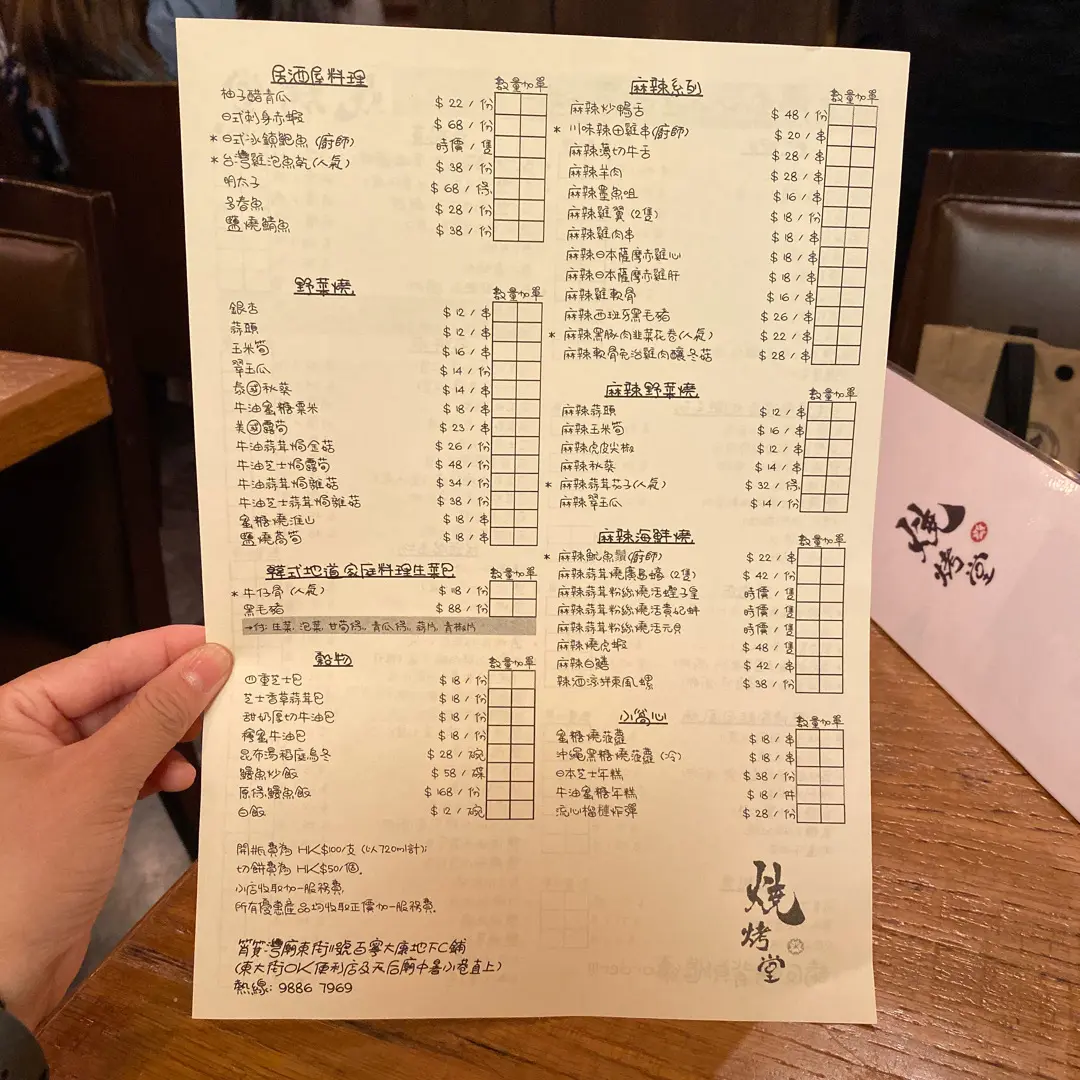 居酒屋料理
數量 加單
柚子醋青瓜 $ 22 / 份
日式刺身赤蝦 $ 68 / 份
* 日式冰鎮鮑魚 (廚師) 時價 / 隻
* 台灣雞泡魚乾 (人氣) $ 38 / 份
明太子 $ 68 / 條
多春魚 $ 28 / 份
鹽燒鯖魚 $ 38 / 份
野菜燒
數量 加單
銀杏 $ 12 / 串
蒜頭 $ 12 / 串
玉米筍 $ 16 / 串
翠玉瓜 $ 14 / 份
泰國秋葵 $ 14 / 串
牛油蜜糖粟米 $ 18 / 串
美國露筍 $ 23 / 串
牛油蒜茸焗金菇 $ 26 / 份
牛油芝士焗露筍 $ 48 / 份
牛油蒜茸焗雜菇 $ 34 / 份
牛油芝士蒜茸焗雜菇 $ 38 / 份
蜜糖燒淮山 $ 18 / 串
鹽燒萵筍 $ 18 / 串
韓式地道家庭料理生菜包
數量 加單
* 牛仔骨 (人氣) $ 118 / 份
黑毛豬 $ 88 / 份
→付: 生菜, 泡菜, 甘筍條, 青瓜條, 蒜片, 青椒片
穀物
數量 加單
四重芝士包 $ 18 / 份
芝士香草蒜茸包 $ 18 / 份
甜奶厚切牛油包 $ 18 / 份
蜜牛油包 $ 18 / 份
昆布湯稻庭烏冬 $ 28 / 碗
鰻魚炒飯 $ 58 / 碟
原條鰻魚飯 $ 168 / 份
白飯 $ 12 / 碗
開瓶費為 HK$100/支 (以720ml計);
切餅費為 HK$50/個.
小店收取加一服務費,
所有優惠產品均收取正價加一服務費.
筲箕灣廟東街11號百寧大廈地下C鋪
(東大街OK便利店及天后廟中看小巷直上)
熱線: 9886 7969
麻辣系列
數量 加單
麻辣炒鴨舌 $ 48 / 份
* 川味辣田雞串 (廚師) $ 20 / 串
麻辣薄切牛舌 $ 28 / 串
麻辣羊肉 $ 28 / 串
麻辣墨魚咀 $ 16 / 串
麻辣雞翼 (2隻) $ 18 / 份
麻辣雞肉串 $ 18 / 串
麻辣日本薩摩赤雞心 $ 18 / 串
麻辣日本薩摩赤雞肝 $ 18 / 串
麻辣雞軟骨 $ 16 / 串
麻辣西班牙黑毛豬 $ 26 / 串
* 麻辣黑豚肉韭菜花卷 (人氣) $ 22 / 串
麻辣軟骨免治雞肉釀冬菇 $ 28 / 串
麻辣野菜燒
數量 加單
麻辣蒜頭 $ 12 / 串
麻辣玉米筍 $ 16 / 串
麻辣虎皮尖椒 $ 12 / 串
麻辣秋葵 $ 14 / 串
* 麻辣蒜茸茄子 (人氣) $ 32 / 條
麻辣翠玉瓜 $ 14 / 份
麻辣海鮮燒
數量 加單
* 麻辣魷魚鬚 (廚師) $ 22 / 串
麻辣蒜茸燒廣島蠔 (2隻) $ 42 / 份
麻辣蒜茸粉絲燒活蟶子皇 時價 / 隻
麻辣蒜茸粉絲燒活貴妃蚌 時價 / 隻
麻辣蒜茸粉絲燒活元貝 時價 / 隻
麻辣燒虎蝦 $ 48 / 隻
麻辣白鱔 $ 42 / 串
辣酒涼拌東風螺 $ 38 / 份
小窩心
數量 加單
蜜糖燒菠蘿 $ 18 / 串
沖繩黑糖燒菠蘿 (冷) $ 18 / 串
日本芝士年糕 $ 38 / 份
牛油蜜糖年糕 $ 18 / 件
流心榴槤炸彈 $ 28 / 份
燒烤堂
燒烤堂